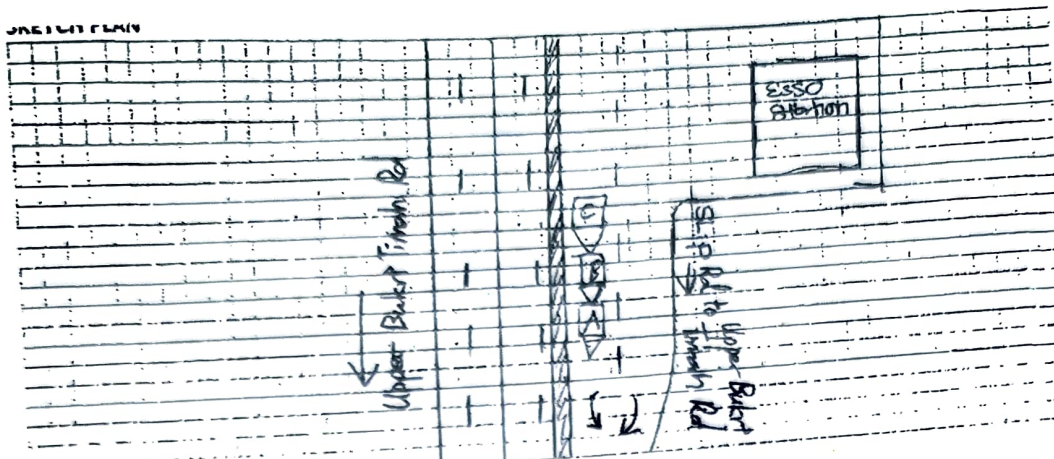 SKETCH PLAN
Esso
Station
Upper Bukit Timah Rd
Slip Rd to Upper Bukit
Timah Rd
C
B
A